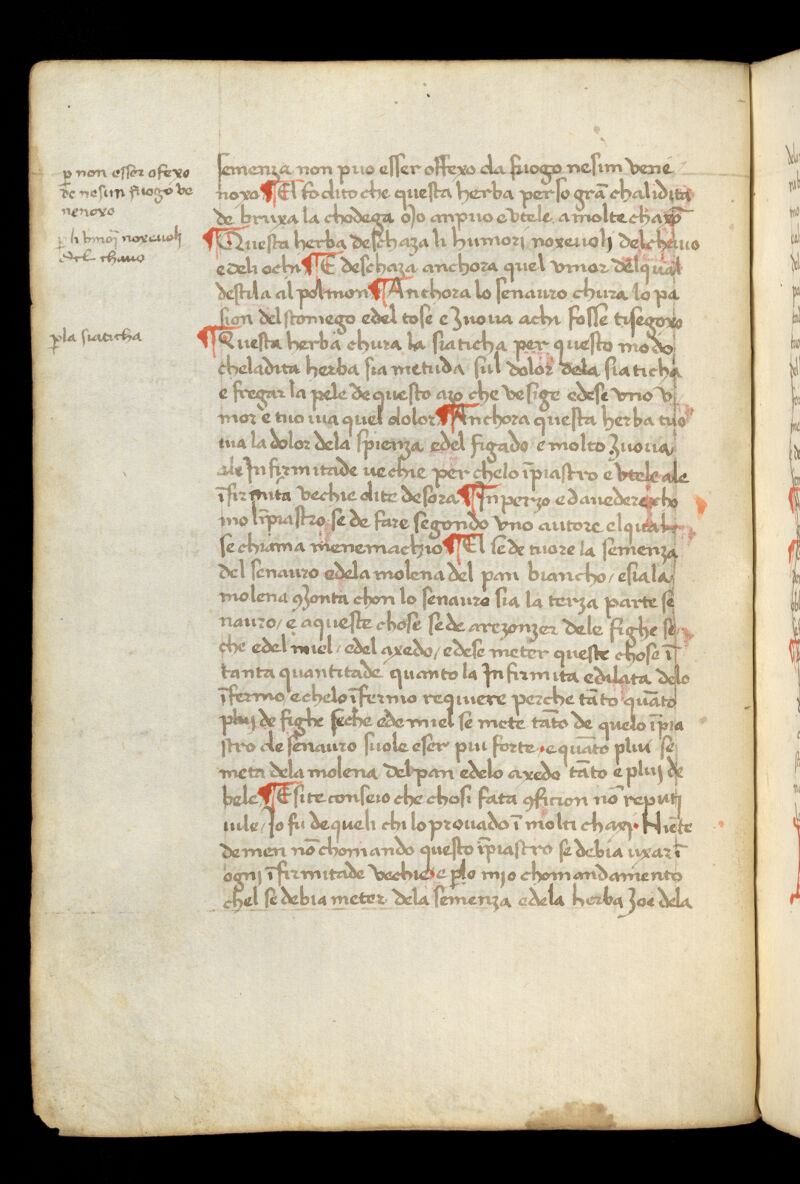 p̱ non esser ofexo
de nesun fuogo ve
nenoxo
p̱ li humoɽ noxeuoli
del chauo
p̱ la siaticha
semenza non puo esser offexo da fuogo nesun vene
noxo ¶ El fo dito che questa herba per so grā chalidita
de bruxa la chodega
¶ Questa herba deschaza li humori noxeuoli del chauo
e deli ochi ¶ E deschaza anchora quel vmor del qual
destila al polmon ¶ Anchora lo senauro chura lo pa
sion del stomego e del tose e zuoua a chi fosse tisegoxo
¶ Questa herba chura la siaticha per questo modo
che la dita herba sia metuda sul dolor dela siaticha
e fregar la pele de questo azo che vesige e dese vno v
mor e tuo uia quel dolor ¶ Anchora questa herba tuo
uia la dolor dela spienza e del figado e molto zuoua
ale Infirmitade uechie per che lo īpiastro e vtele ale
īfirmita vechie dite desora ¶ Inperzo e da uedere cho
mo l īpiastro se de fare segondo vno autore el qual
se chiama menemachio ¶ El se de tuore la semenza
del senauro e dela molena del pan biancho / e sia la
molena 9zonta chon lo senauro sia la terza parte se
nauro / e a queste chose se de arezonzer dele fighe se
che e del miel / e del axedo / e dese meter queste chose ī
tanta quantitade quanto la Infirmita e dilata delo
īfermo e che lo īfermo requiere perche tāto quāto
pluj de fighe seche e de miel se mete tāto de quelo īpia
stro de senauro suole eser piu forte · e quāto plui se
meta dela molena del pan e delo axedo tāto e pluj de
bele ¶ E si te conseio che chosi fata 9ficion nō reputi
uile / Io fu de queli chi lo prouado ī molti chaxi · Niēte
de men nō chomando questo īpiastro se debia uxar ī
ognj īfirmitade vechie e p̱ lo mjo chomandamento
chel se debia meter dela semenza e dela herba zoe dela